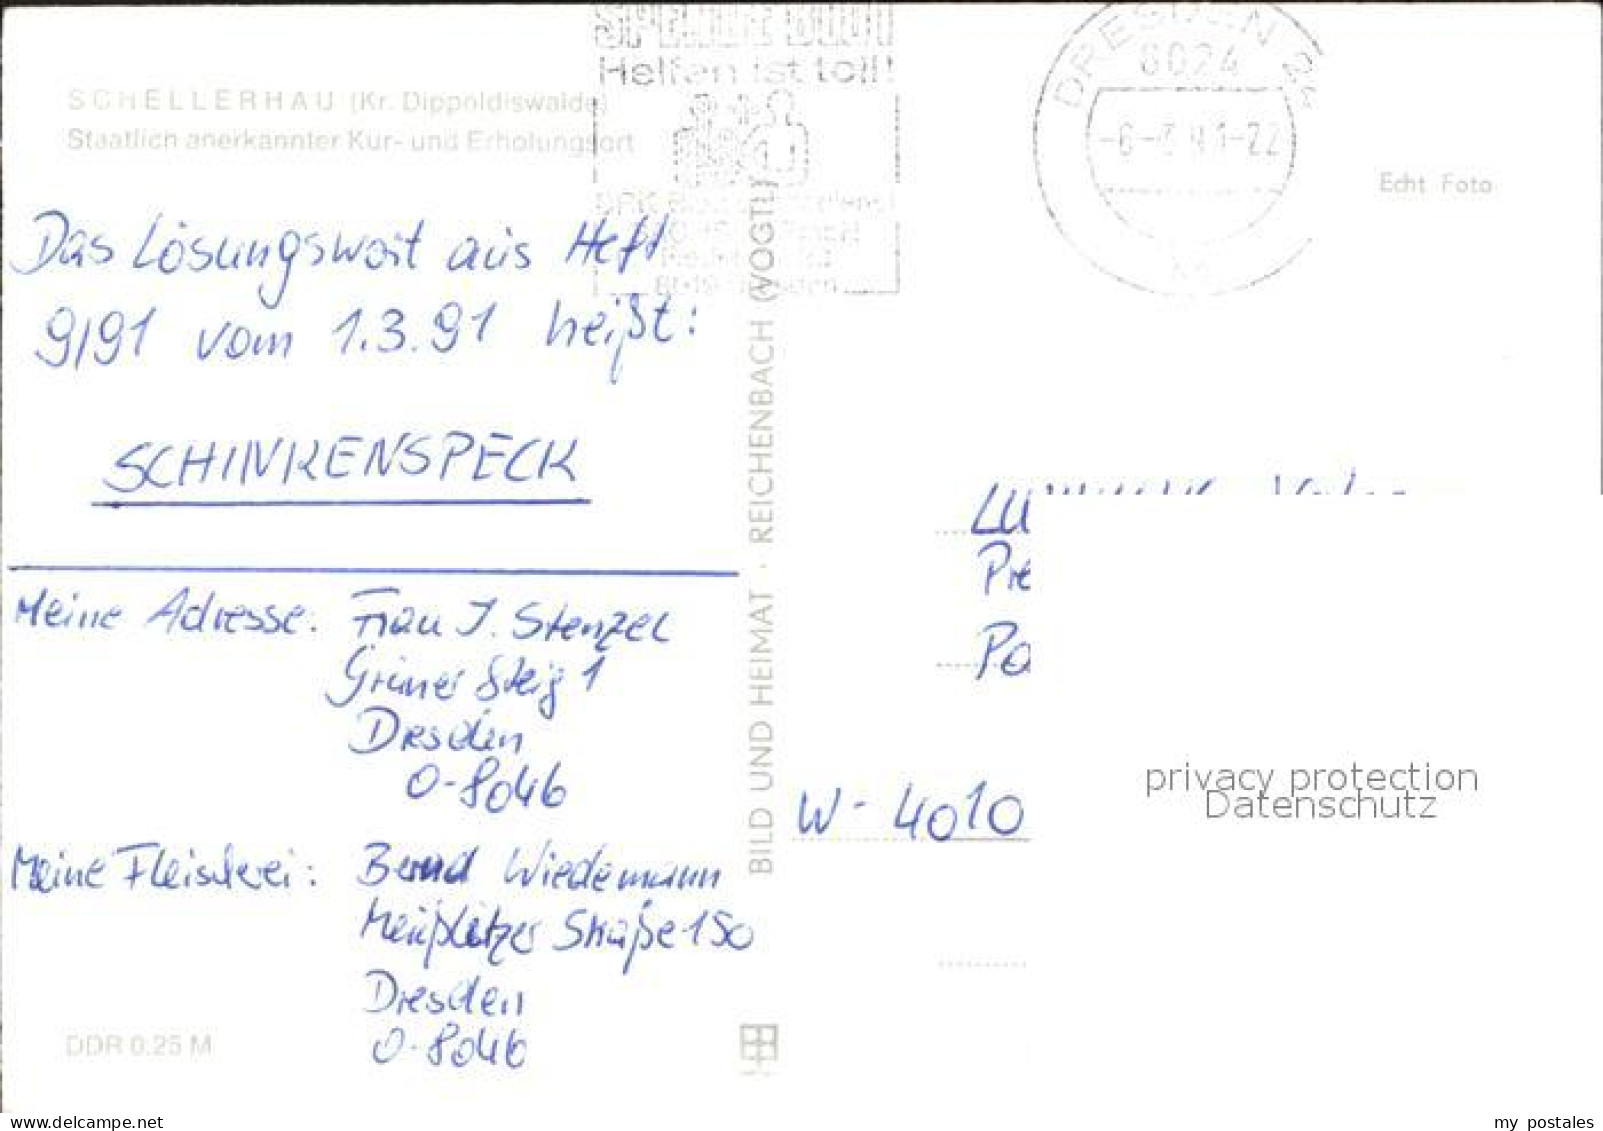 SCHELLERHAU (Kr. Dippoldiswalde)
Staatlich anerkannter Kur- und Erholungsort
SPENDE BLUT
Helfen ist toll!
DRESDEN 24
8024
Echt Foto
Das Lösungswort aus Heft
9/91 vom 1.3.91 heißt:
SCHINKENSPECK
Meine Adresse: Frau I. Stenzel
Grüner Steig 1
Dresden
O-8046
Meine Fleischerei: Bernd Wiedemann
Meußlitzer Straße 150
Dresden
O-8046
DDR 0.25 M
BILD UND HEIMAT · REICHENBACH (VOGTL)
W-4010
privacy protection
Datenschutz
delcampe.net
my postales